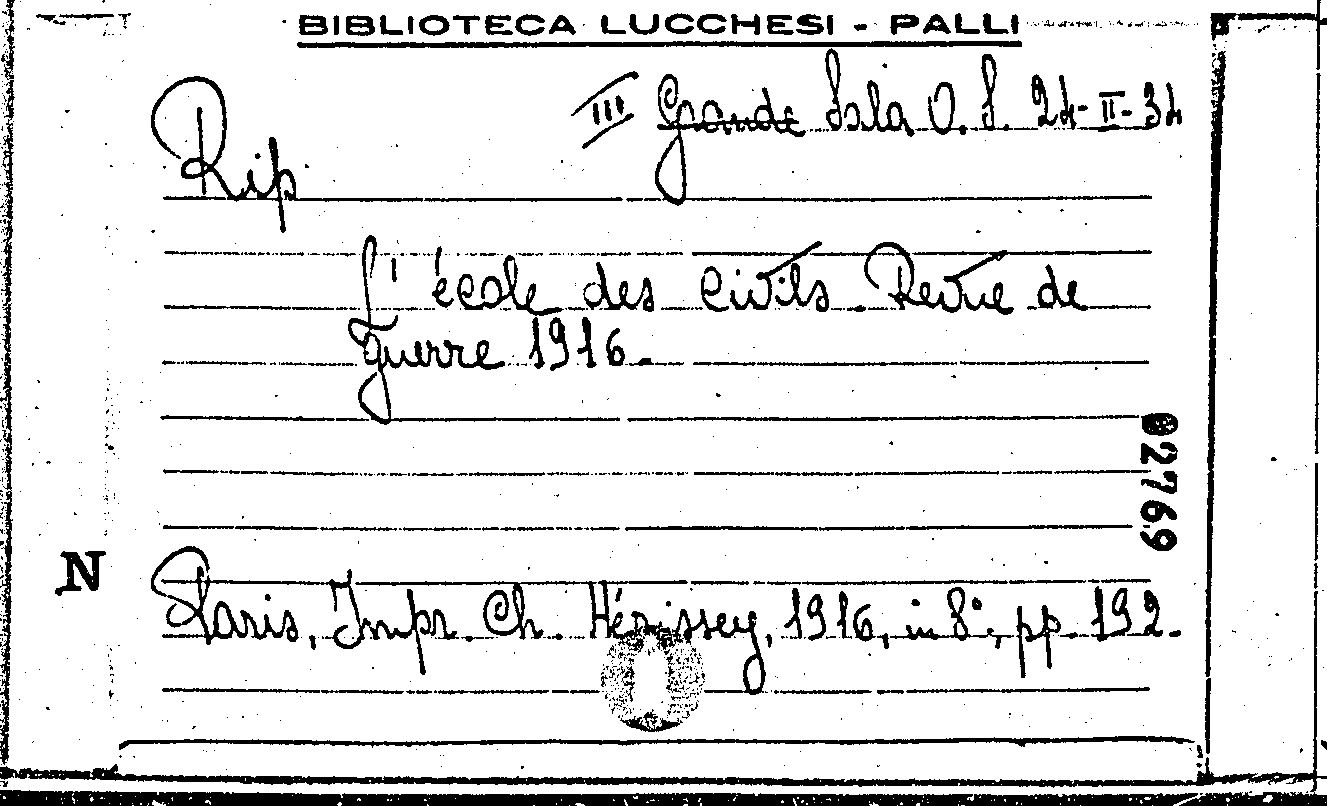 BIBLIOTECA LUCCHESI - PALLI
III Grande Sala O. S. 24-II-34
Rip
L'école des civils. Revue de
guerre 1916.
02769
N
Paris, Impr. Ch. Hérissey, 1916, in 8°, pp. 192.